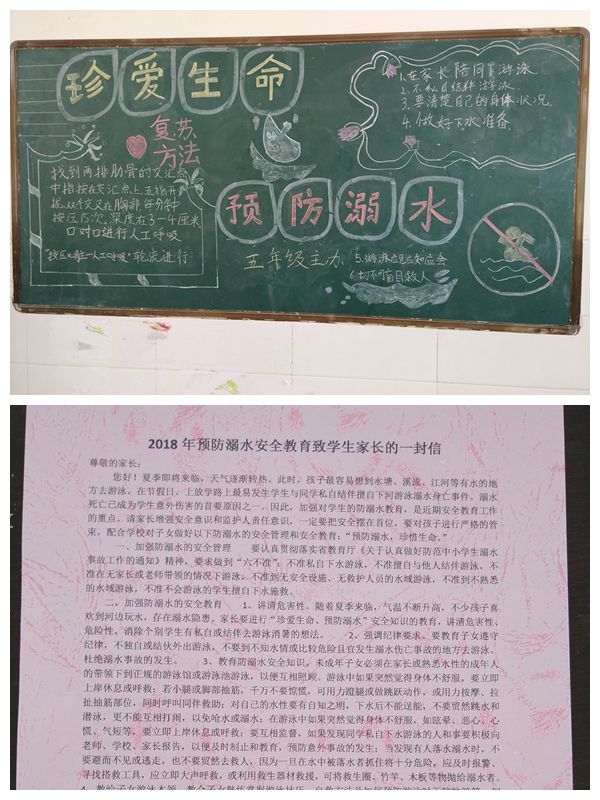 珍爱生命
复苏
方法
找到两排肋骨的交汇点
中指按在交汇点上,五指开
按压15次,深度在3—4厘米
口对口进行人工呼吸
轮流进行
1.在家长陪同下游泳
2.不私自结伴游泳
3.要清楚自己的身体状况
4.做好下水准备
预防溺水
五年级主办
盲目救人
2018 年预防溺水安全教育致学生家长的一封信
尊敬的家长:
您好!夏季即将来临,天气逐渐转热。此时,孩子最容易想到水塘、溪流、江河等有水的地
方去游泳。在节假日、上放学路上最易发生学生与同学私自结伴擅自下河游泳溺水身亡事件。溺水
死亡已成为学生意外伤害的首要原因之一。因此,加强对学生的防溺水教育,是近期安全教育工作
的重点。请家长增强安全意识和监护人责任意识,一定要把安全摆在首位,要对孩子进行严格的管
束,配合学校对子女做好以下防溺水的安全管理和安全教育:“预防溺水,珍惜生命。”
一、加强防溺水的安全管理 要认真贯彻落实省教育厅《关于认真做好防范中小学生溺水
事故工作的通知》精神,要求做到“六不准”:不准私自下水游泳,不准擅自与他人结伴游泳,不
准在无家长或老师带领的情况下游泳,不准到无安全设施、无救护人员的水域游泳,不准到不熟悉
的水域游泳,不准不会游泳的学生擅自下水施救。
二,加强防溺水的安全教育 1、讲清危害性。随着夏季来临,气温不断升高,不少孩子喜
欢到河边玩水,存在溺水隐患,家长要进行“珍爱生命、预防溺水”安全知识的教育,讲清危害性、
危险性,消除个别学生有私自或结伴去游泳消暑的想法。 2、强调纪律要求。要教育子女遵守
纪律,不独自或结伙外出游泳,不要到不知水情或比较危险且宜发生溺水伤亡事故的地方去游泳。
杜绝溺水事故的发生。 3、教育防溺水安全知识。未成年子女必须在家长或熟悉水性的成年人
的带领下到正规的游泳馆或游泳池游泳,以便互相照顾。游泳中如果突然觉得身体不舒服,要立即
上岸休息或呼救;若小腿或脚部抽筋,千万不要惊慌,可用力蹬腿或做跳跃动作,或用力按摩、拉
扯抽筋部位,同时呼叫同伴救助;对自己的水性要有自知之明,下水后不能逞能,不要贸然跳水和
潜泳,更不能互相打闹,以免呛水或溺水;在游泳中如果突然觉得身体不舒服,如眩晕、恶心、心
慌、气短等,要立即上岸休息或呼救;要互相监督,如果发现同学私自下水游泳的人和事要积极向
老师、学校、家长报告,以便及时制止和教育,预防意外事故的发生;当发现有人落水溺水时,不
要避而不见或逃走,也不要贸然去救人,因为一旦在水中被落水者抓住将十分危险,应及时报警、
寻找搭救工具,应立即大声呼救,或利用救生器材救援,可将救生圈、竹竿、木板等物抛给溺水者。